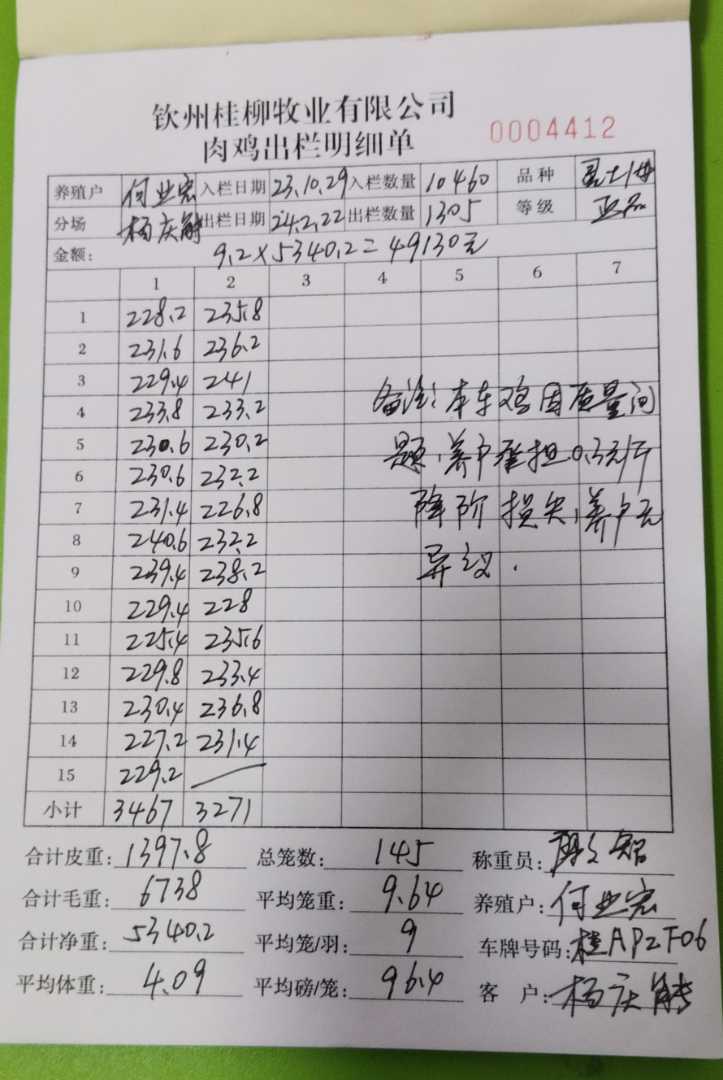 钦州桂柳牧业有限公司
肉鸡出栏明细单
0004412
养殖户 何业宏 入栏日期 23.10.29 入栏数量 10460 品种
分场 杨庆能 出栏日期 24.2.22 出栏数量 1305 等级 正品
金额: 9.2×5340.2=49130元
1 2 3 4 5 6 7
1 228.2 235.8
2 231.6 236.2
3 229.4 241
4 233.8 233.2
5 230.6 230.2
6 230.6 232.2
7 231.4 226.8
8 240.6 232.2
9 239.4 238.2
10 229.4 228
11 225.4 235.6
12 229.8 233.4
13 230.4 236.8
14 227.2 231.4
15 229.2
小计 3467 3271
备注:本车鸡因质量问
题,养户承担0.3元/斤
降阶损失,养户无
异议.
合计皮重: 1397.8 总笼数: 145 称重员:
合计毛重: 6738 平均笼重: 9.64 养殖户: 何业宏
合计净重: 5340.2 平均笼/羽: 9 车牌号码: 桂AP2F06
平均体重: 4.09 平均磅/笼: 96.4 客户: 杨庆能